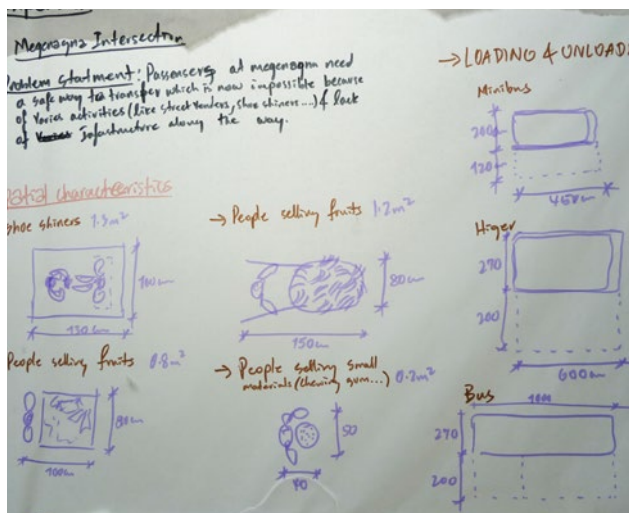 Megenagna Intersection
Problem statment: Passensers at megenagna need
a safe way to transfer which is now impossible because
of Varies activities (like street venders, shoe shiners....) & lack
of Infastructure along the way.
spatial characteristics
shoe shiners 1.3m²
100cm
130cm
→ People selling fruits 1.2m²
80cm
150cm
People selling fruits 0.8m²
80cm
100cm
→ People selling small
materials (chewing gum...) 0.2m²
50
40
→ LOADING & UNLOADI
Minibus
200
120
450cm
Higer
270
200
600cm
Bus
270
200